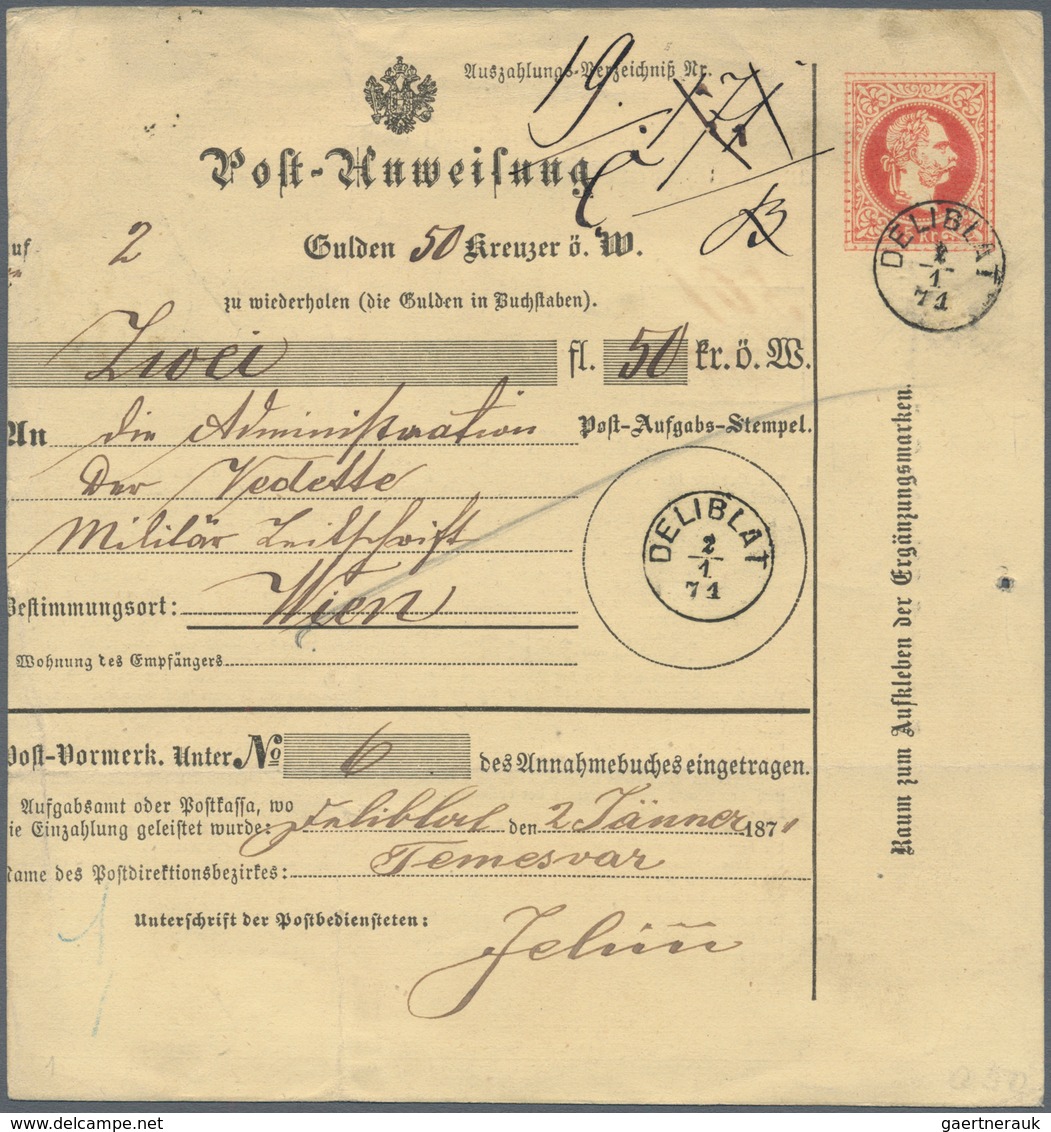 Auszahlungs-Verzeichniß Nr.
19.
Post-Anweisung
uf 2 Gulden 50 Kreuzer ö. W.
zu wiederholen (die Gulden in Buchstaben).
Zwei fl. 50 kr. ö. W.
An die Administration
der Vedette
Militär Zeitschrift
Bestimmungsort: Wien
Wohnung des Empfängers
Post-Aufgabs-Stempel.
DELIBLAT
2
1
71
DELIBLAT
2
1
71
Raum zum Aufkleben der Ergänzungsmarken.
Post-Vormerk. Unter No 6 des Annahmebuches eingetragen.
Aufgabsamt oder Postkassa, wo
ie Einzahlung geleistet wurde: Deliblat den 2 Jänner 1871
Name des Postdirektionsbezirkes: Temesvar
Unterschrift der Postbediensteten:
1
gaertnerauk